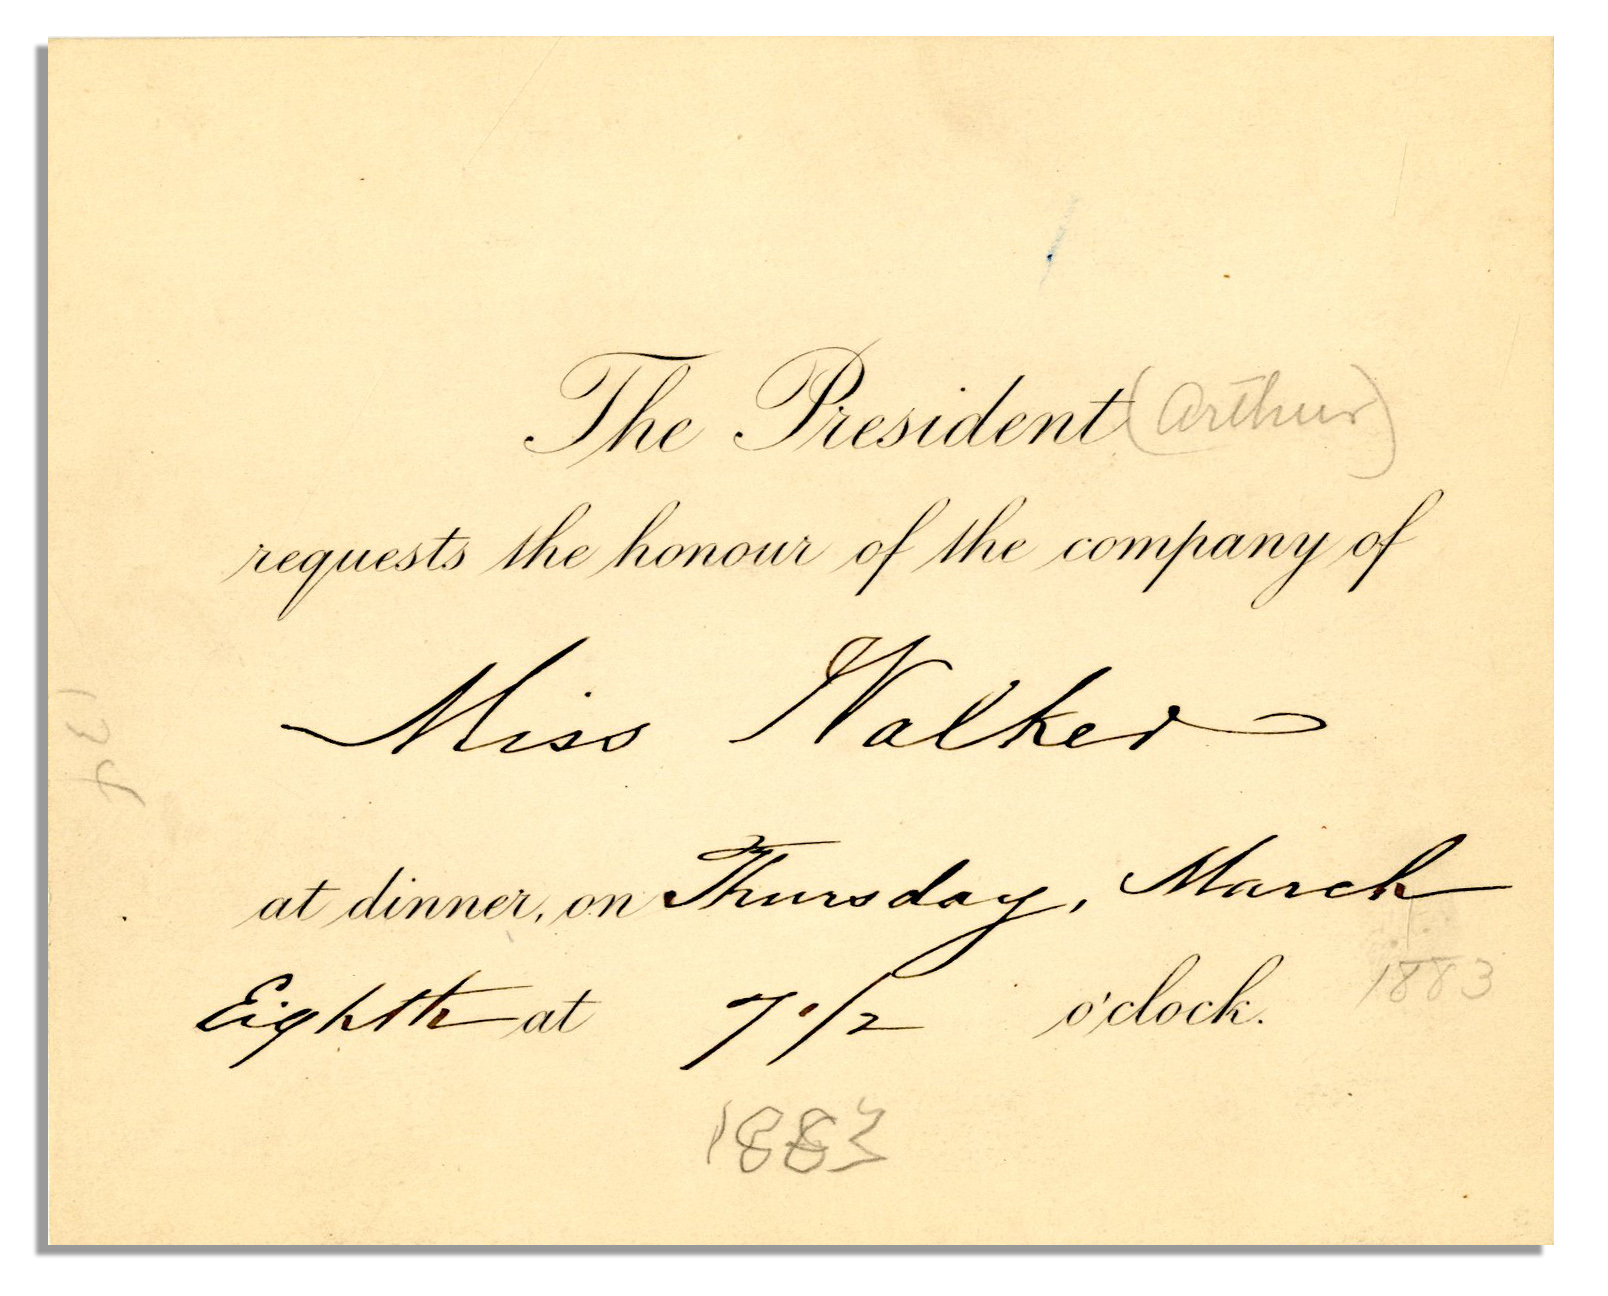 The President (Arthur)
requests the honour of the company of
Miss Walker
at dinner, on Thursday, March
1883
Eighth at 7 1/2 o'clock.
1883